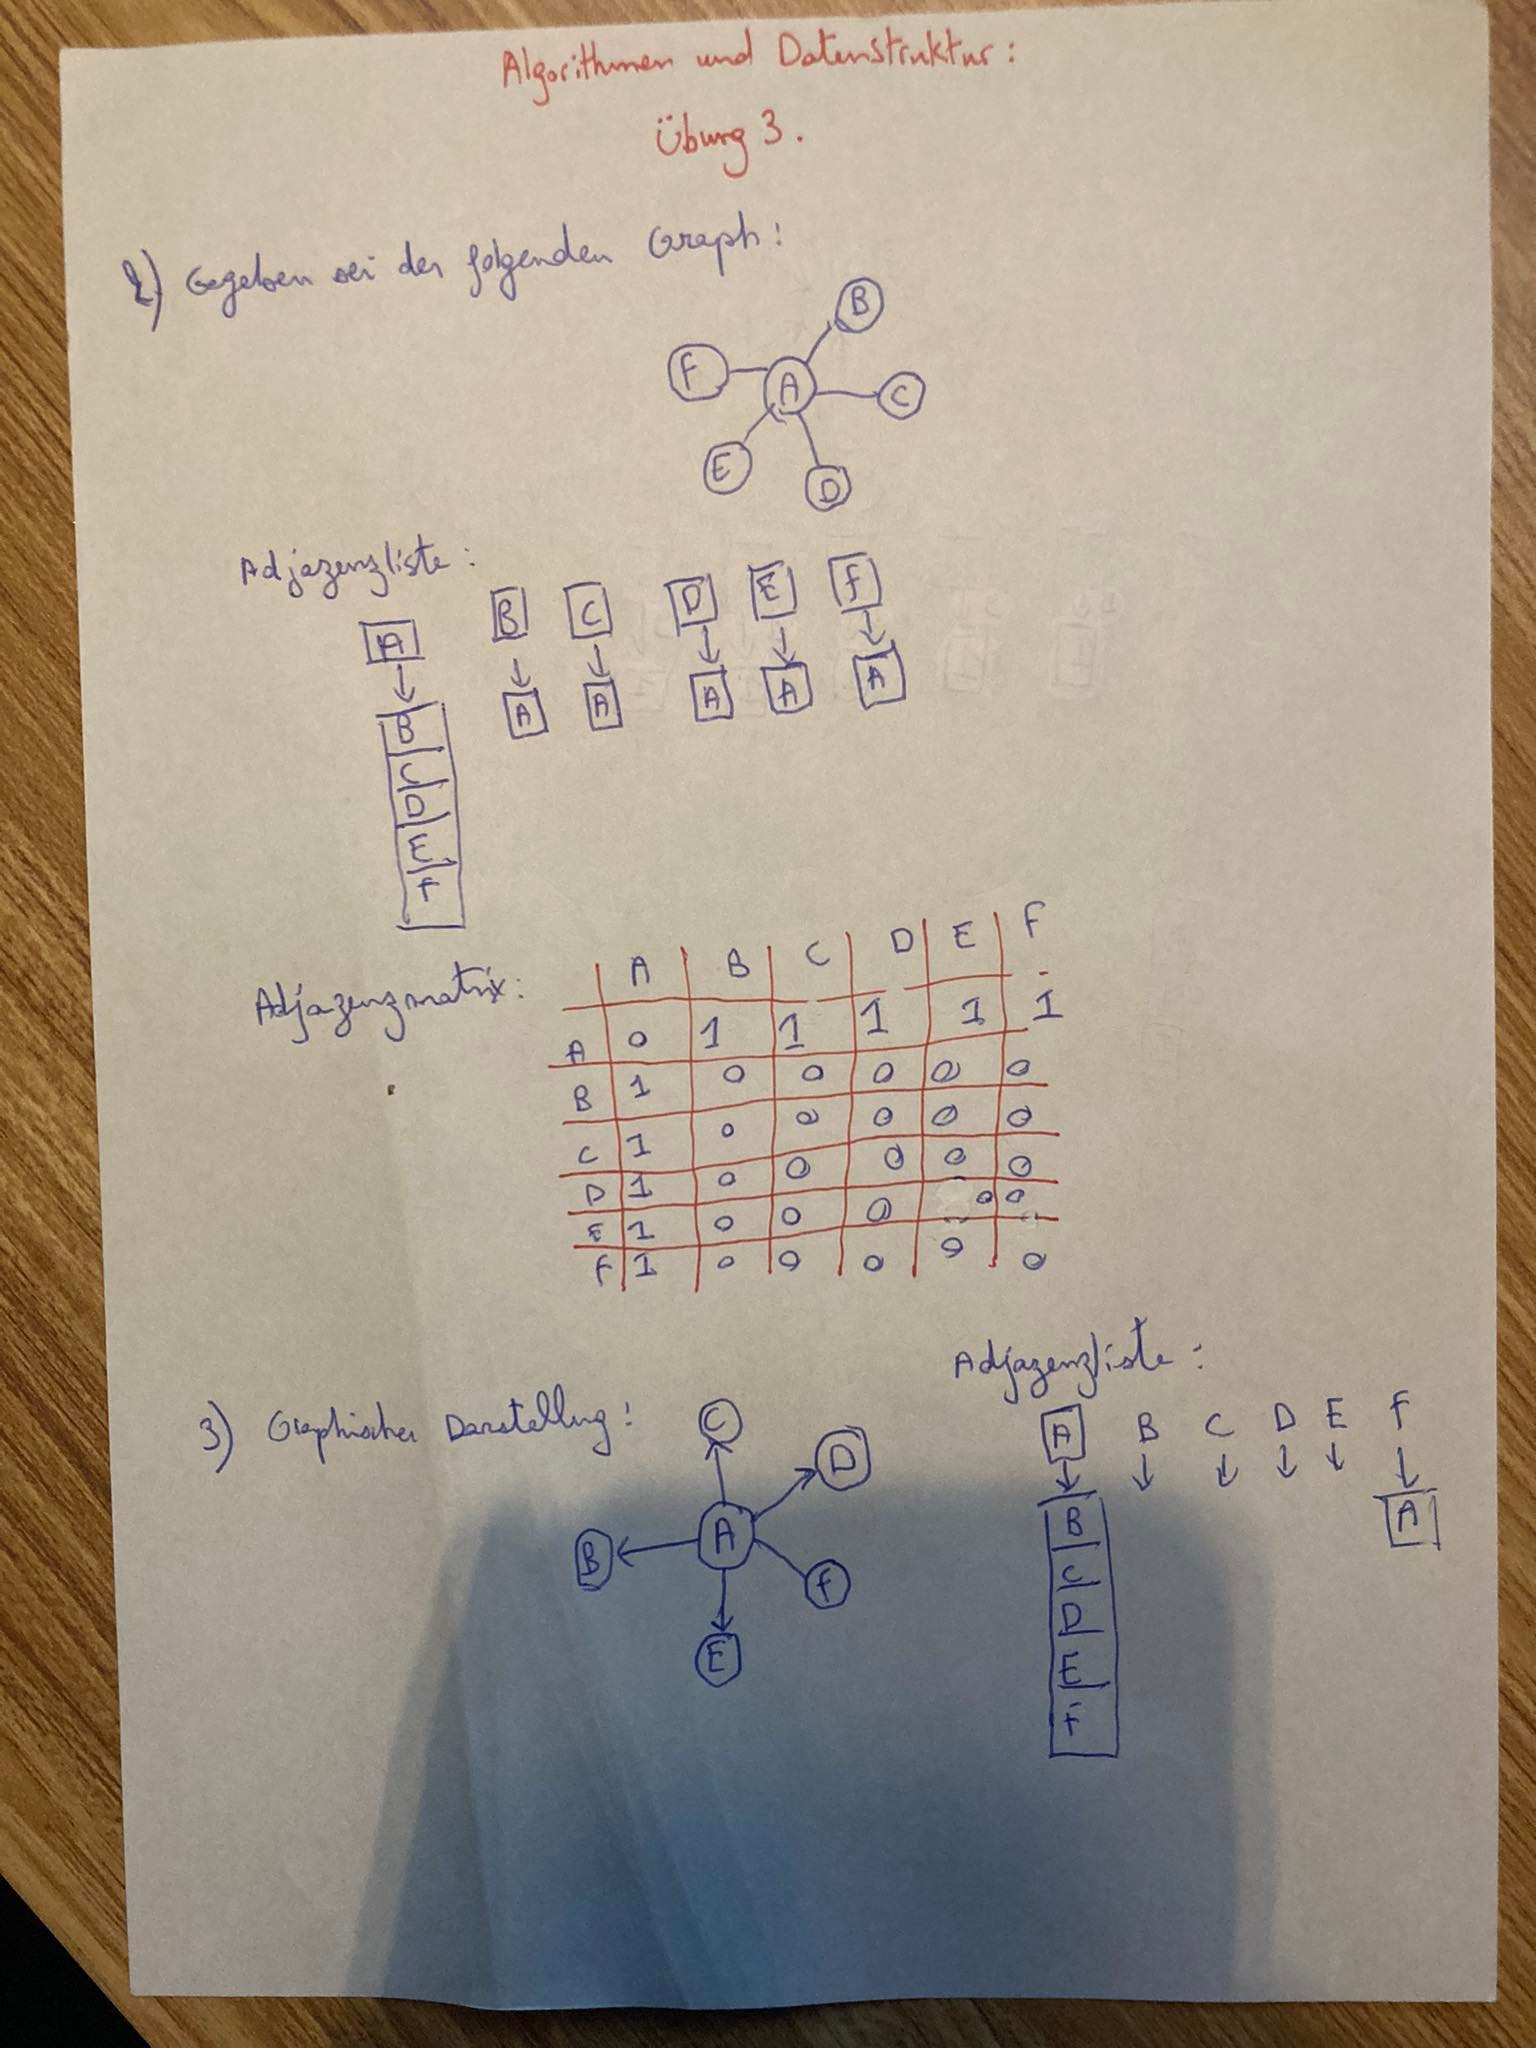 Algorithmen und Datenstruktur:
Übung 3.
2) Gegeben sei der folgenden Graph:
B
F A C
E D
Adjazenzliste:
A B C D E F
A A A A A
B
C
D
E
F
Adjazenzmatrix:
A B C D E F
A 0 1 1 1 1 1
B 1 0 0 0 0 0
C 1 0 0 0 0 0
D 1 0 0 0 0 0
E 1 0 0 0 0 0
F 1 0 0 0 0 0
3) Graphischer Darstellung:
C
D
A
B
F
E
Adjazenzliste:
A B C D E F
B A
C
D
E
F